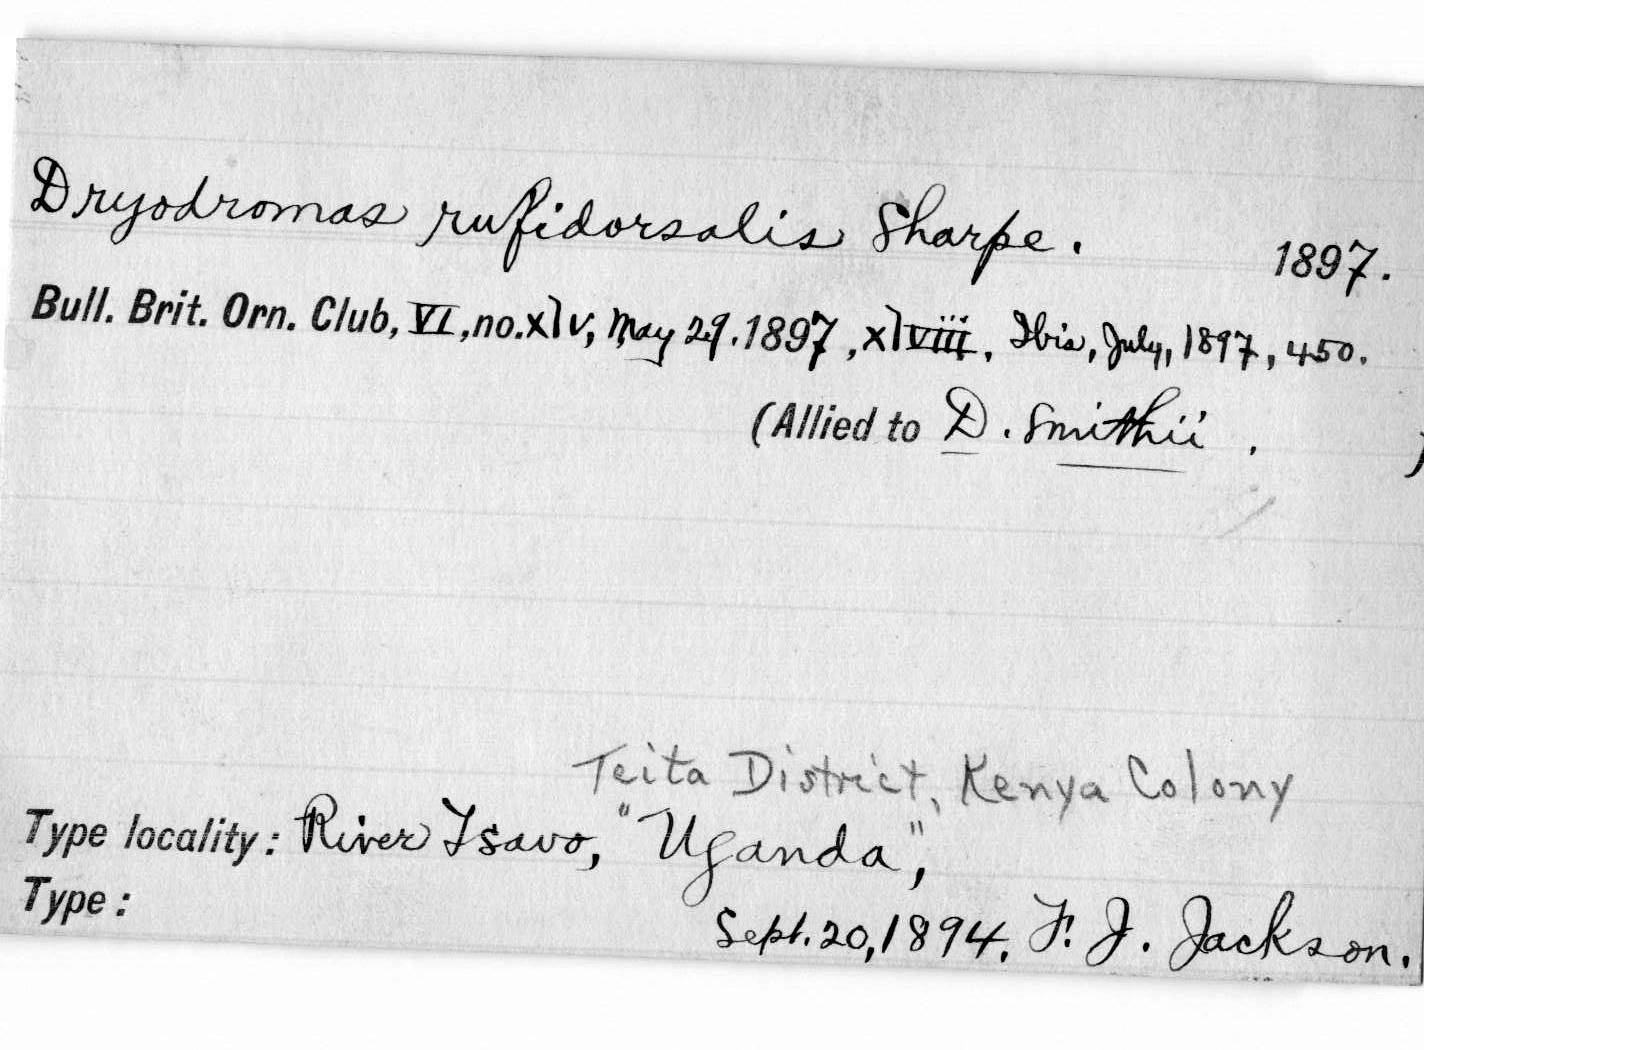 Dryodromas rufidorsalis Sharpe. 1897.
Bull. Brit. Orn. Club, VI, no. xlv, May 29. 1897, xlviii. Ibis, July, 1897, 450.
(Allied to D. Smithii . )
Teita District, Kenya Colony
Type locality: River Tsavo, "Uganda",
Type:
Sept. 20, 1894, F. J. Jackson.